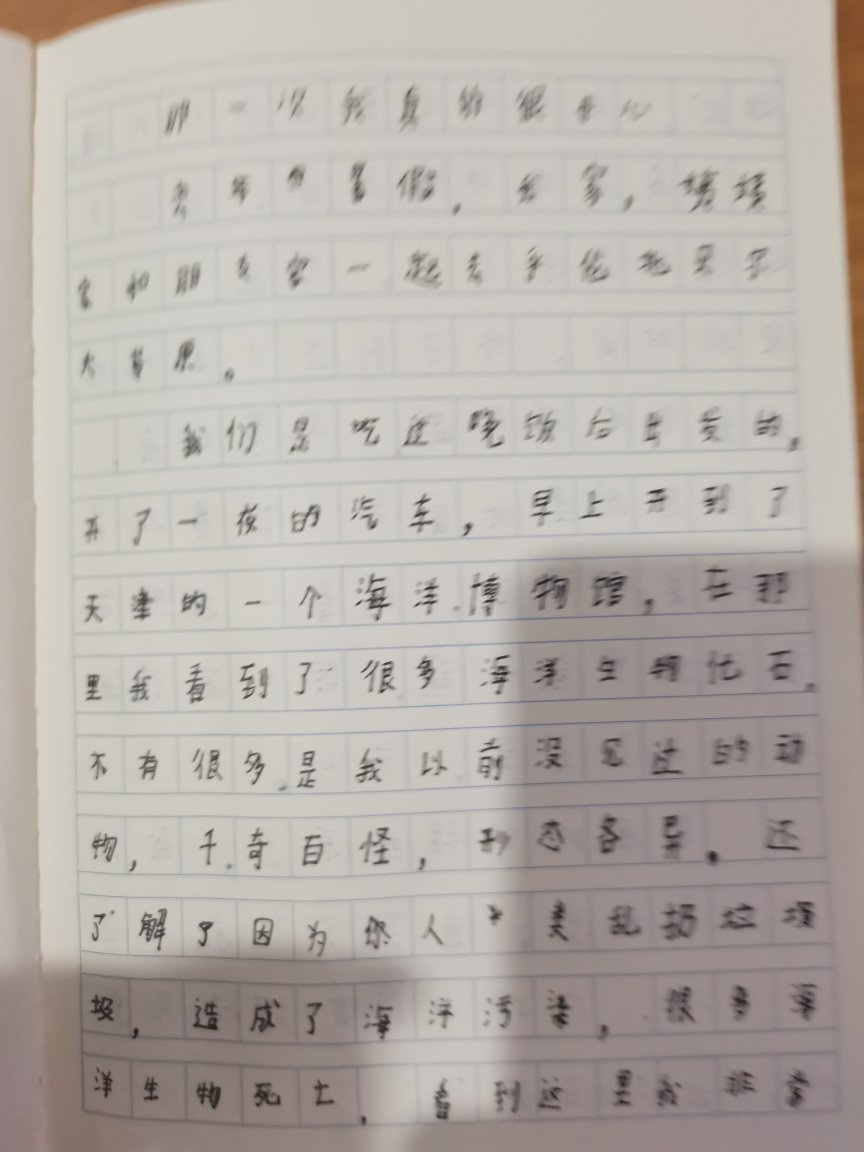 那一次我真的很开心
去年的暑假，我家，
家和朋友家一起去乌
大草原。
我们是吃过晚饭后出发的。
开了一夜的汽车，早上开到了
天津的一个海洋博物馆，在那
里我看到了很多海洋生物化石。
不有很多是我以前没见过的动
物，千奇百怪，形态各异。还
了解了因为人类乱扔垃圾
圾，造成了海洋污染，很多海
洋生物死亡。看到这里我非常